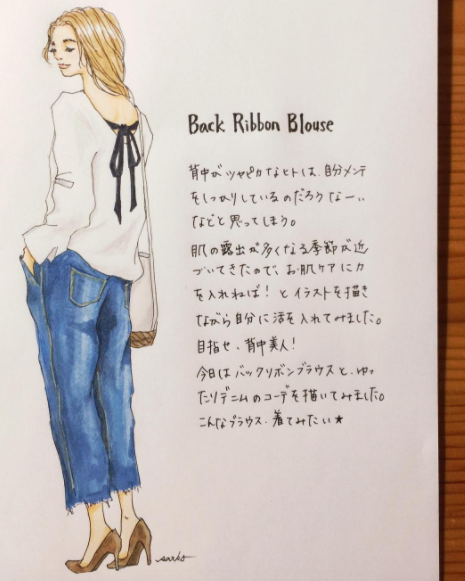 Back Ribbon Blouse
背中がツヤピカなヒトは、自分メンテ
をしっかりしているのだろうなー…
などと思ってしまう。
肌の露出が多くなる季節が近
づいてきたので、お肌ケアに力
を入れねば！とイラストを描き
ながら自分に活を入れてみました。
目指せ、背中美人！
今日はバックリボンブラウスと、ゆっ
たりデニムのコーデを描いてみました。
こんなブラウス、着てみたい★